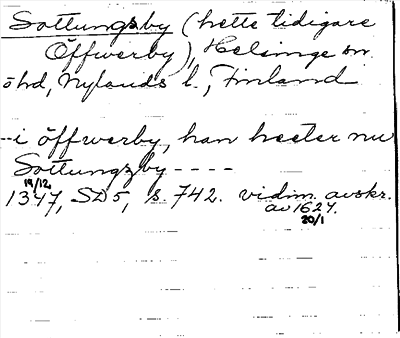 Sottungsby (hette tidigare
Öffwerby), Helsinge sn.
öhd, Nylands l., Finland
--i öffwerby, han heeter nu
Sottungzby ----
19/12
1347, SD5, s. 742. vidim. avskr.
av 1627.
20/1